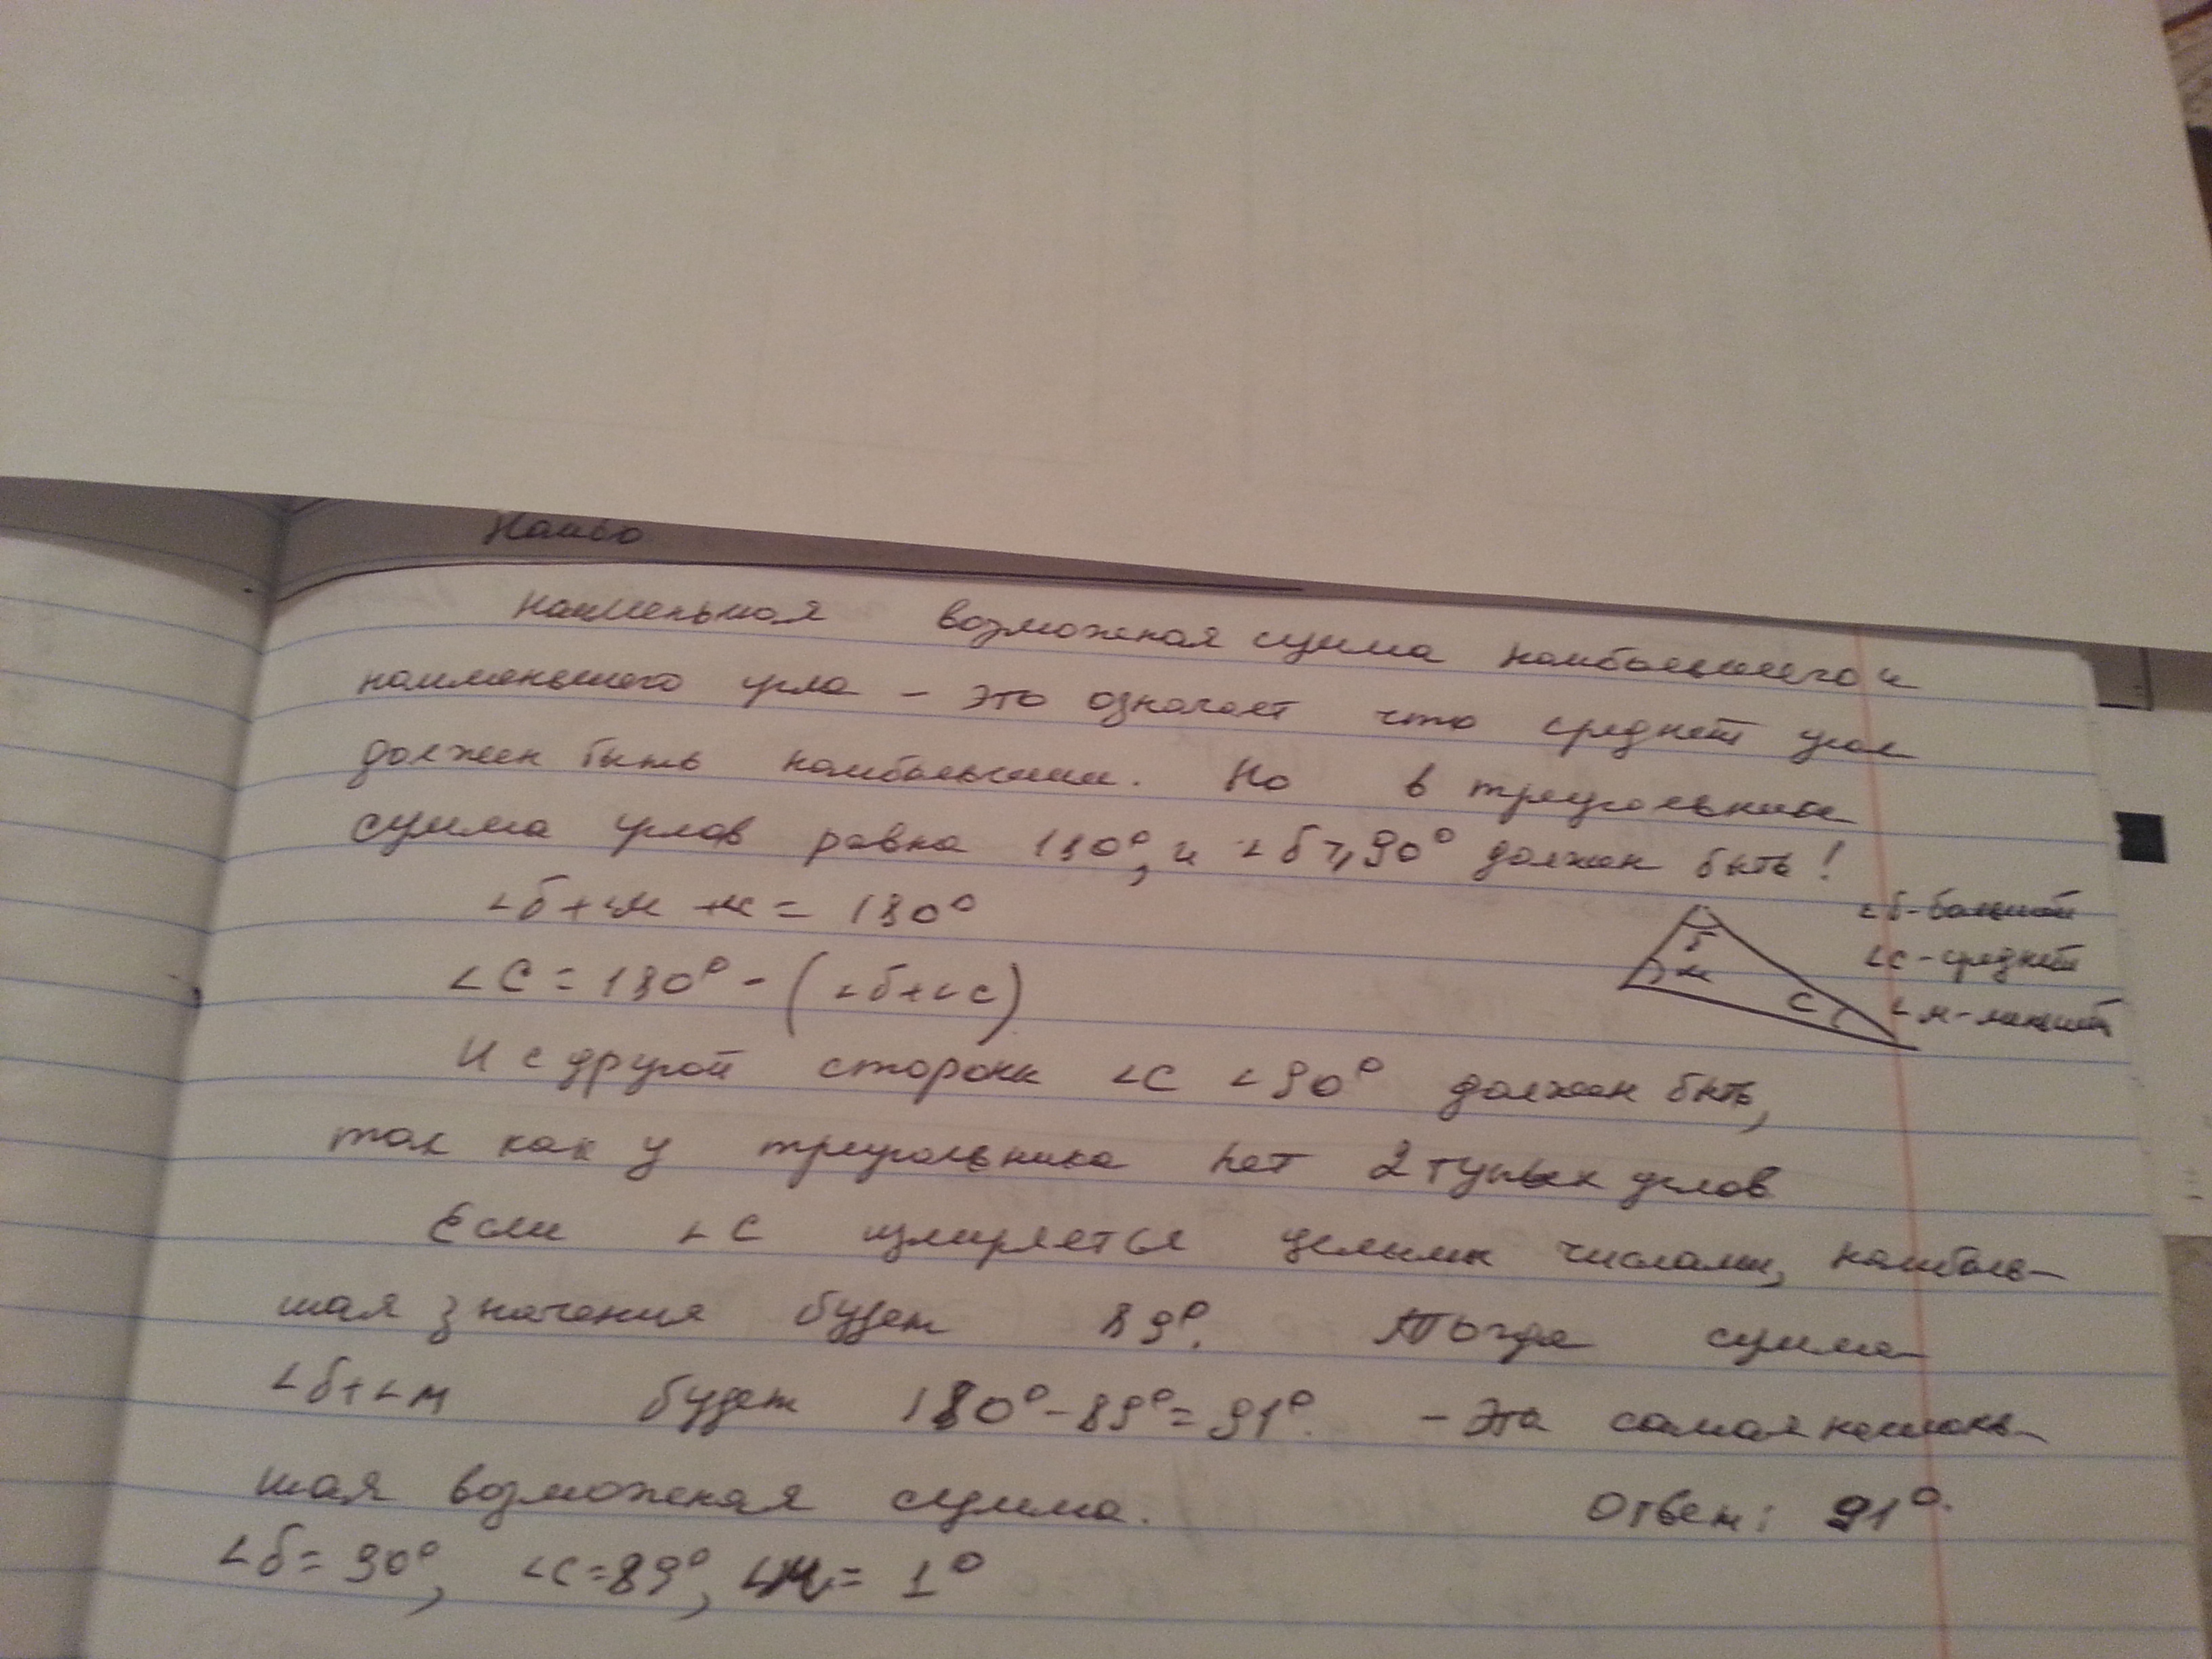 Наибо
наименьшая возможная сумма наибольшего и
наименьшего угла - это означает что средний угол
должен быть наибольшим. Но в треугольнике
сумма углов равна 180°, и ∠б ⩾ 90° должен быть!
∠б+∠м +∠с = 180°
∠С = 180° - (∠б+∠с)
И с другой стороны ∠С < 90° должен быть,
так как у треугольника нет 2 тупых углов
Если ∠С измиряется целыми числами, наиболь-
шая значения будет 89°. Тогда сумма
∠б+∠м будет 180°-89°=91°. - Эта самая наимень-
шая возможеная сумма. Ответ: 91°.
∠б= 90°, ∠С=89°, ∠м= 1°
б
м
С
∠б-большой
∠с-средний
∠м-меньший